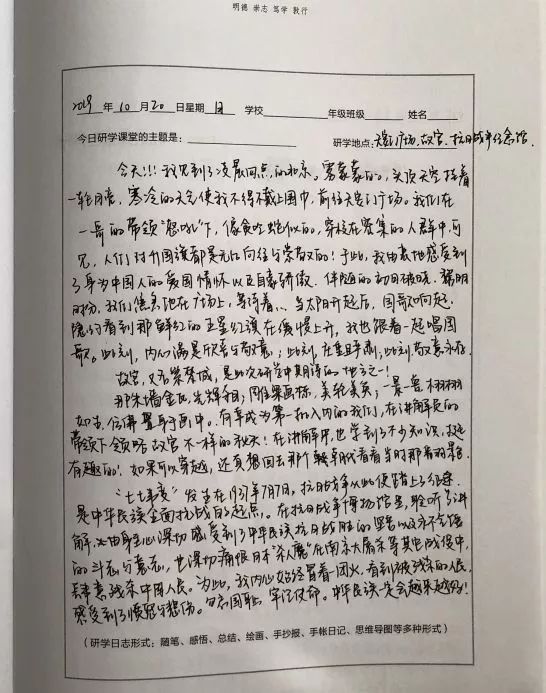 明德 崇志 笃学 敦行
2019年10月20日星期日 学校 年级班级 姓名
今日研学课堂的主题是： 研学地点：天安门广场、故宫、抗日战争纪念馆
今天!!! 我见到了凌晨四点的北京。雾蒙蒙的，头顶天空挂着
一轮月亮，寒冷的天气使我不得不戴上围巾，前往天安门广场。我们在
一哥的带领下，像贪吃蛇似的，穿梭在密集的人群中，可
见，人们对升国旗都是无比向往与崇敬的！于此，我由衷地感受到
了身为中国人的爱国情怀以及自豪骄傲。伴随的初日破晓，黎明
时分，我们焦急地在广场上，等待着、、当太阳升起后，国歌响起，
隐约看到那鲜红的五星红旗在缓慢上升，我也跟着一起唱国
歌。此刻，内心满是欣喜与敬意；此刻，庄重且肃；此刻，敬意永存。
故宫，又名紫禁城，是此次研学中期待的地方之一！
那朱墙金瓦，光辉夺目；雕梁画栋，美轮美奂；一景一景，栩栩
如生，仿佛置身于画中。有幸成为第一批入内的我们，在讲解员的
带领下领略故宫不一样的秘史！在讲解中，也学到了不少知识，挺
有趣的！如果可以穿越，还真想回去那个朝代看看当时那番景色
“七七事变”发生在1937年7月7日，抗日战争从此便踏上了征途
是中华民族全面抗战的起点。在抗日战争博物馆里，聆听了讲
解，也深切感受到了中华民族抗日战胜的坚苦以及不容
的斗志与意志，也深切痛恨日本“杀人魔”在南京大屠杀等其他战役中，
残杀中国人民。为此，我内心始终冒着一团火，看到被残杀的人民，
感受到了愤怒与悲伤。勿忘国耻，牢记使命。中华民族一定会越来越好！
（研学日志形式：随笔、感悟、总结、绘画、手抄报、手帐日记、思维导图等多种形式）